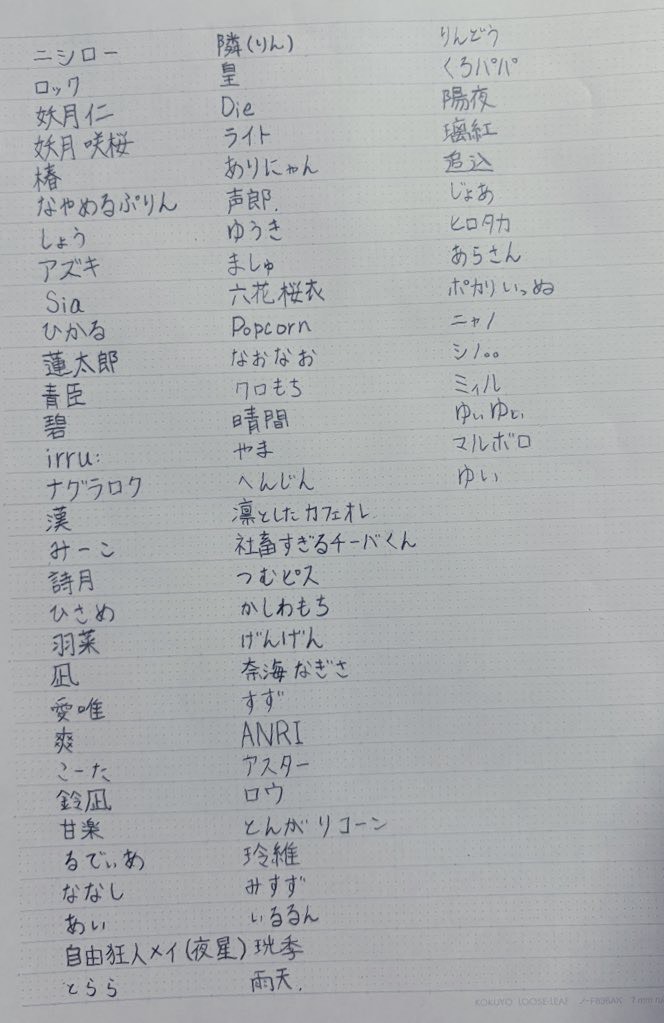 ニシロー
ロック
妖月仁
妖月咲桜
椿
なやめるぷりん
しょう
アズキ
Sia
ひかる
蓮太郎
青臣
碧
irru:
ナグラロク
漢
みーこ
詩月
ひさめ
羽菜
凪
愛唯
爽
こーた
鈴凪
甘楽
るでぃあ
ななし
あい
自由狂人メイ(夜星)
とらら
隣(りん)
皇
Die
ライト
ありにゃん
声郎.
ゆうき
ましゅ
六花桜衣
Popcorn
なおなお
クロもち
晴間
やま
へんじん
凛としたカフェオレ
社畜すぎるチーバくん
つむピス
かしわもち
げんげん
奈海なぎさ
すず
ANRI
アスター
ロウ
とんがりコーン
玲維
みすず
いるるん
珖季
雨天.
りんどう
くろパパ
陽夜
璃紅
じょあ
ヒロタカ
あらさん
ポカリいっぬ
ニャノ
シノ。。
ミィル
ゆぃゆぃ
マルボロ
ゆい
KOKUYO LOOSE-LEAF